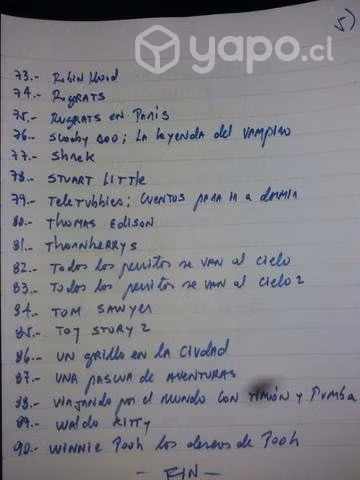 5)
yapo.cl
73.- Robin Hood
74.- Rugrats
75.- Rugrats en Paris
76.- Scooby Doo; La leyenda del vampiro
77.- Shrek
78.- STUART LITTLE
79.- Teletubbies; Cuentos para ir a dormir
80.- Thomas Edison
81.- Thornberrys
82.- Todos los perritos se van al cielo
83.- Todos los perritos se van al cielo 2
84.- TOM SAWYER
85.- TOY STORY 2
86.- UN grillo en la ciudad
87.- UNA PASCUA de AVENTURAS
88.- Viajando por el mundo con Timón y Pumba
89.- Waldo Kitty
90.- Winnie Pooh los deseos de Pooh
- FIN -